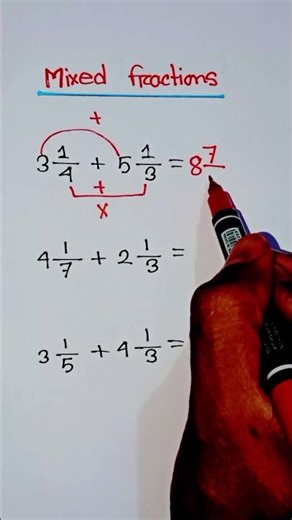 Mixed fractions
+
3 1/4 + 5 1/3 = 8 7/
+
x
4 1/7 + 2 1/3 =
3 1/5 + 4 1/3 =